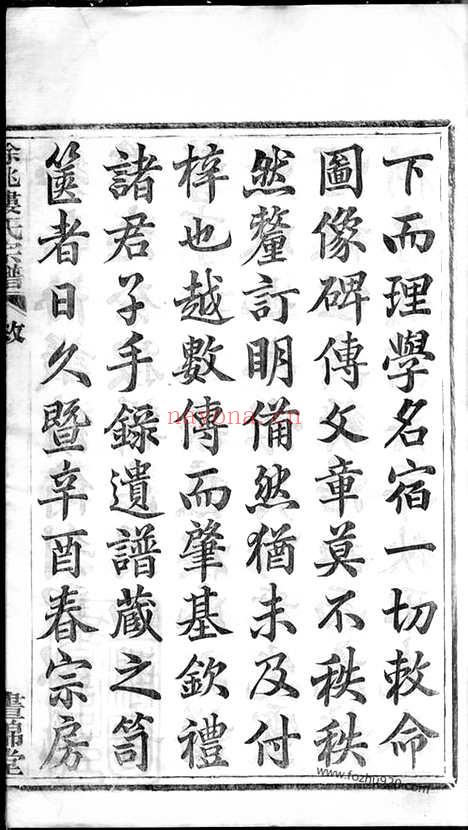 下而理學名宿一切敕命
圖像碑傳文章莫不秩秩
然釐訂明備然猶未及付
梓也越數傳而肇基欽禮
諸君子手錄遺譜藏之笥
篋者日久暨辛酉春宗房
餘姚蔞氏宗譜
敘
晝錦堂
nayona.cn
www.fozhu920.com